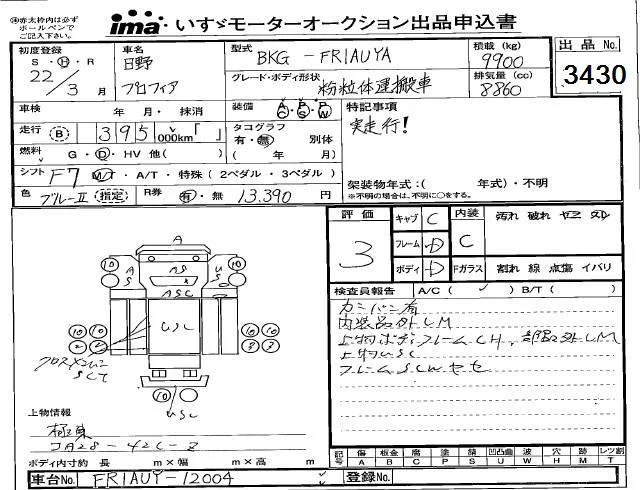 ※赤太枠内は必ず
ボールペンで
ご記入下さい。
ima いすゞモーターオークション出品申込書
初度登録
S・H・R
22/3月
車名
日野
プロフィア
型式
BKG-FR1AUYA
積載 (kg)
9900
出品 No.
3430
グレード・ボディ形状
粉粒体運搬車
排気量 (cc)
8860
車検 年 月・抹消
装備 AC PS PW
特記事項
実走行!
走行 B 395,000km「 」
タコグラフ
有・無 別体
( 年 月)
燃料 G・D・HV 他( )
シフト F7 M/T・A/T・特殊(2ペダル・3ペダル)
架装物年式:( 年式)・不明
※不明の場合は、不明に○をする。
色 ブルーⅡ 指定 R券 有・無 13,390 円
評価
3
キャブ C
フレーム D
ボディ D
内装
C
Fガラス
汚れ 破れ ヤケ スレ
割れ 線 点傷 イバリ
検査員報告 A/C( ) B/T( )
内装品外しM
上物USC
A
10 10
A S
AS
U S
ASC
10 10
USC
10 10
10
USC
上物情報
極東
JA28-42C-2
ボディ内寸約 長 m×幅 m×高 m
記号
傷 A
板金 B
腐 C
塗 P
錆 S
凹凸曲 U
波 W
穴 H
外 M
レツ割 T
車台No. FR1AUY-12004
登録No.